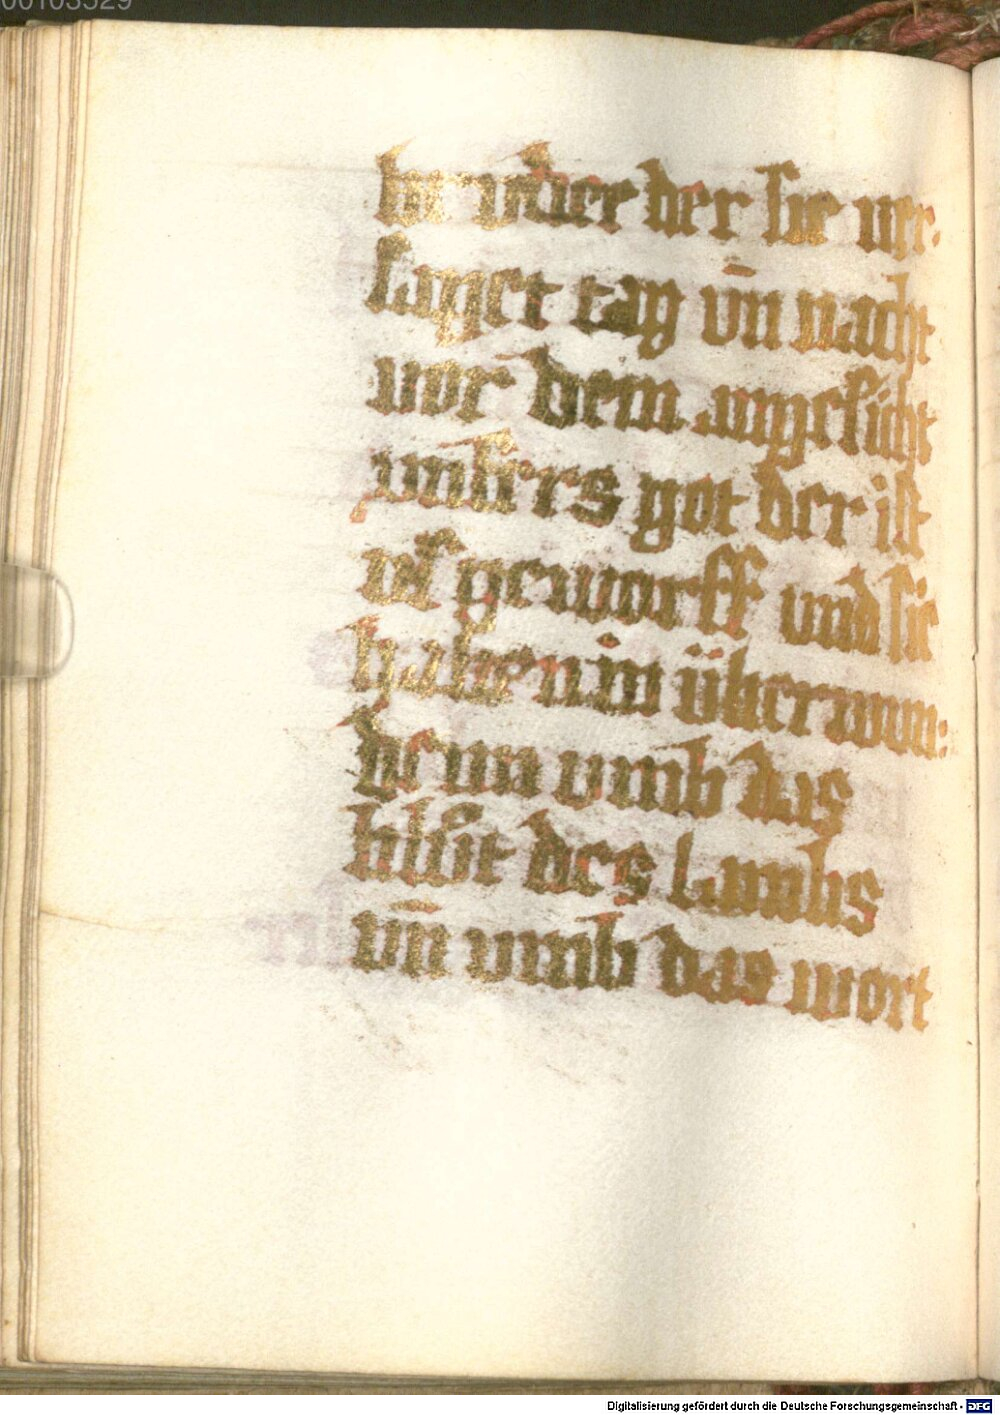 00103529
bruͦder der sie ver:
klaget tag vn̄ nacht
vor dem angesicht
vnsers got der ist
vs geworff vnd sie
haben in überwun:
denn vmb das
bluͦt des lambs
vn̄ vmb das wort
Digitalisierung gefördert durch die Deutsche Forschungsgemeinschaft - DFG